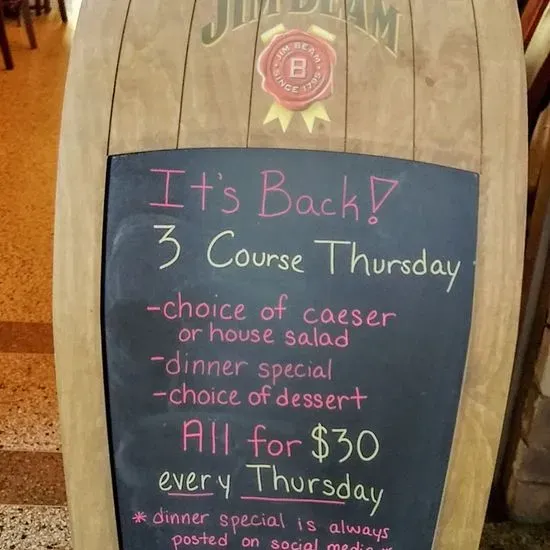 JIM BEAM
JIM BEAM
B
SINCE 1795
It's Back!
3 Course Thursday
-choice of caeser
or house salad
-dinner special
-choice of dessert
All for $30
every Thursday
* dinner special is always
posted on social media *